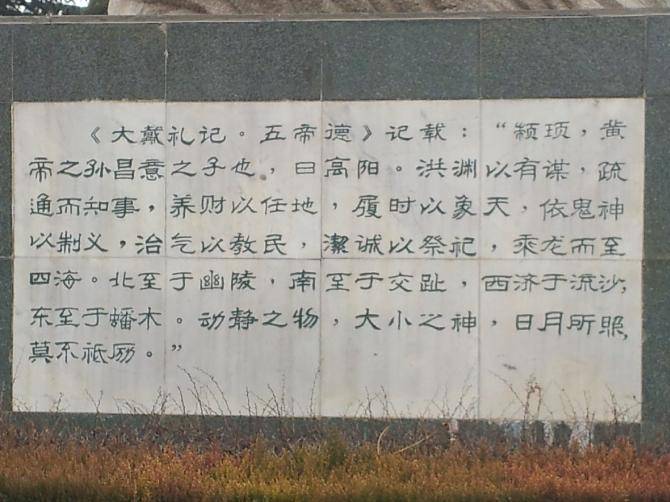 《大戴礼记。五帝德》记载：“颛顼，黄
帝之孙昌意之子也，曰高阳。洪渊以有谋，疏
通而知事，养财以任地，履时以象天，依鬼神
以制义，治气以教民，潔诚以祭祀，乘龙而至
四海。北至于幽陵，南至于交趾，西济于流沙，
东至于蟠木。动静之物，大小之神，日月所照，
莫不祗历。”